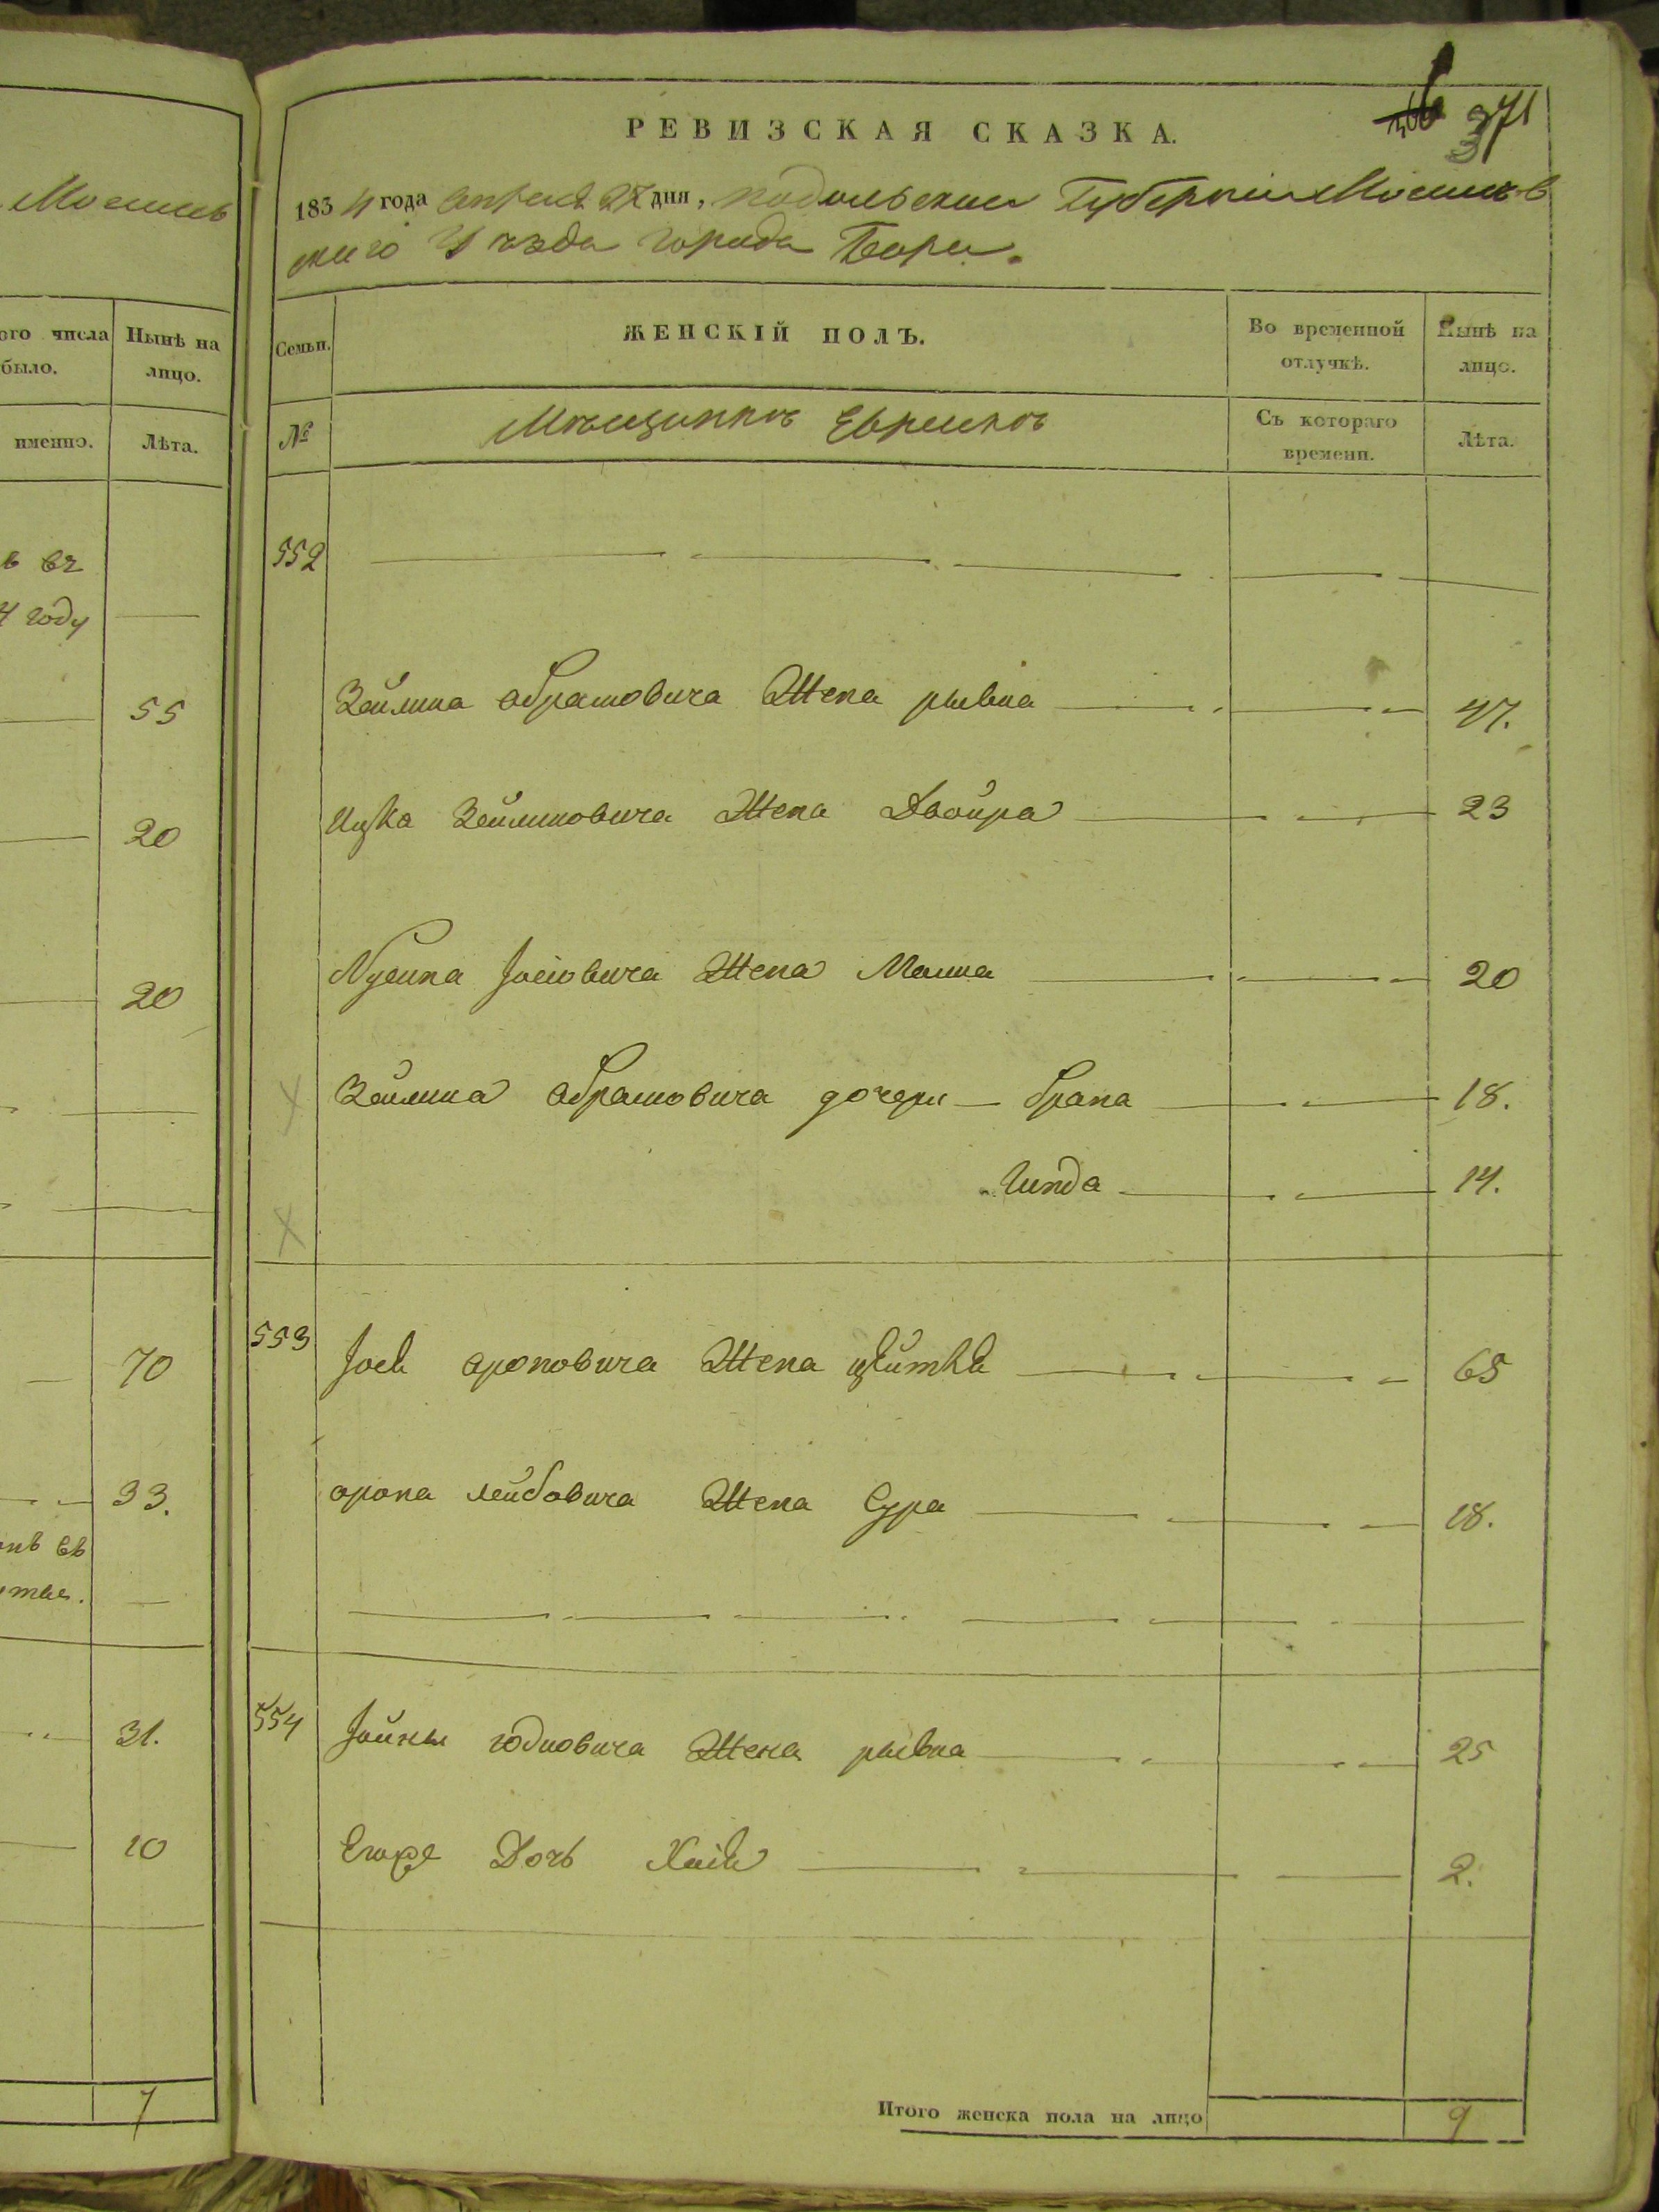 Могилев
ого числа
было.
Нынѣ на
лицо.
именно.
Лѣта.
въ
году
55
20
20
70
33.
въ
31.
10
7
371
РЕВИЗСКАЯ СКАЗКА.
1834 года апреля 27 дня, подольской Губерніи Могилев
скаго Уѣзда города Бара.
Семьи.
ЖЕНСКІЙ ПОЛЪ.
Во временной
отлучкѣ.
Нынѣ на
лицо.
№
Мѣщанкъ Евреекъ
Съ котораго
времени.
Лѣта.
552
Зейлика абрамовича Жена рывка 47.
Ицка Зейликовича Жена Двойра 23
Нусина Іосіовича Жена Малка 20
Зейлика абрамовича дочери брана 18.
Гинда 14.
553 Іося ароновича Жена цвитля 65
арона лейбовича Жена Сура 18.
554 Іойны юдковича Жена рывка 25
Егоже Дочь Хаія 2.
Итого женска пола на лицо 9